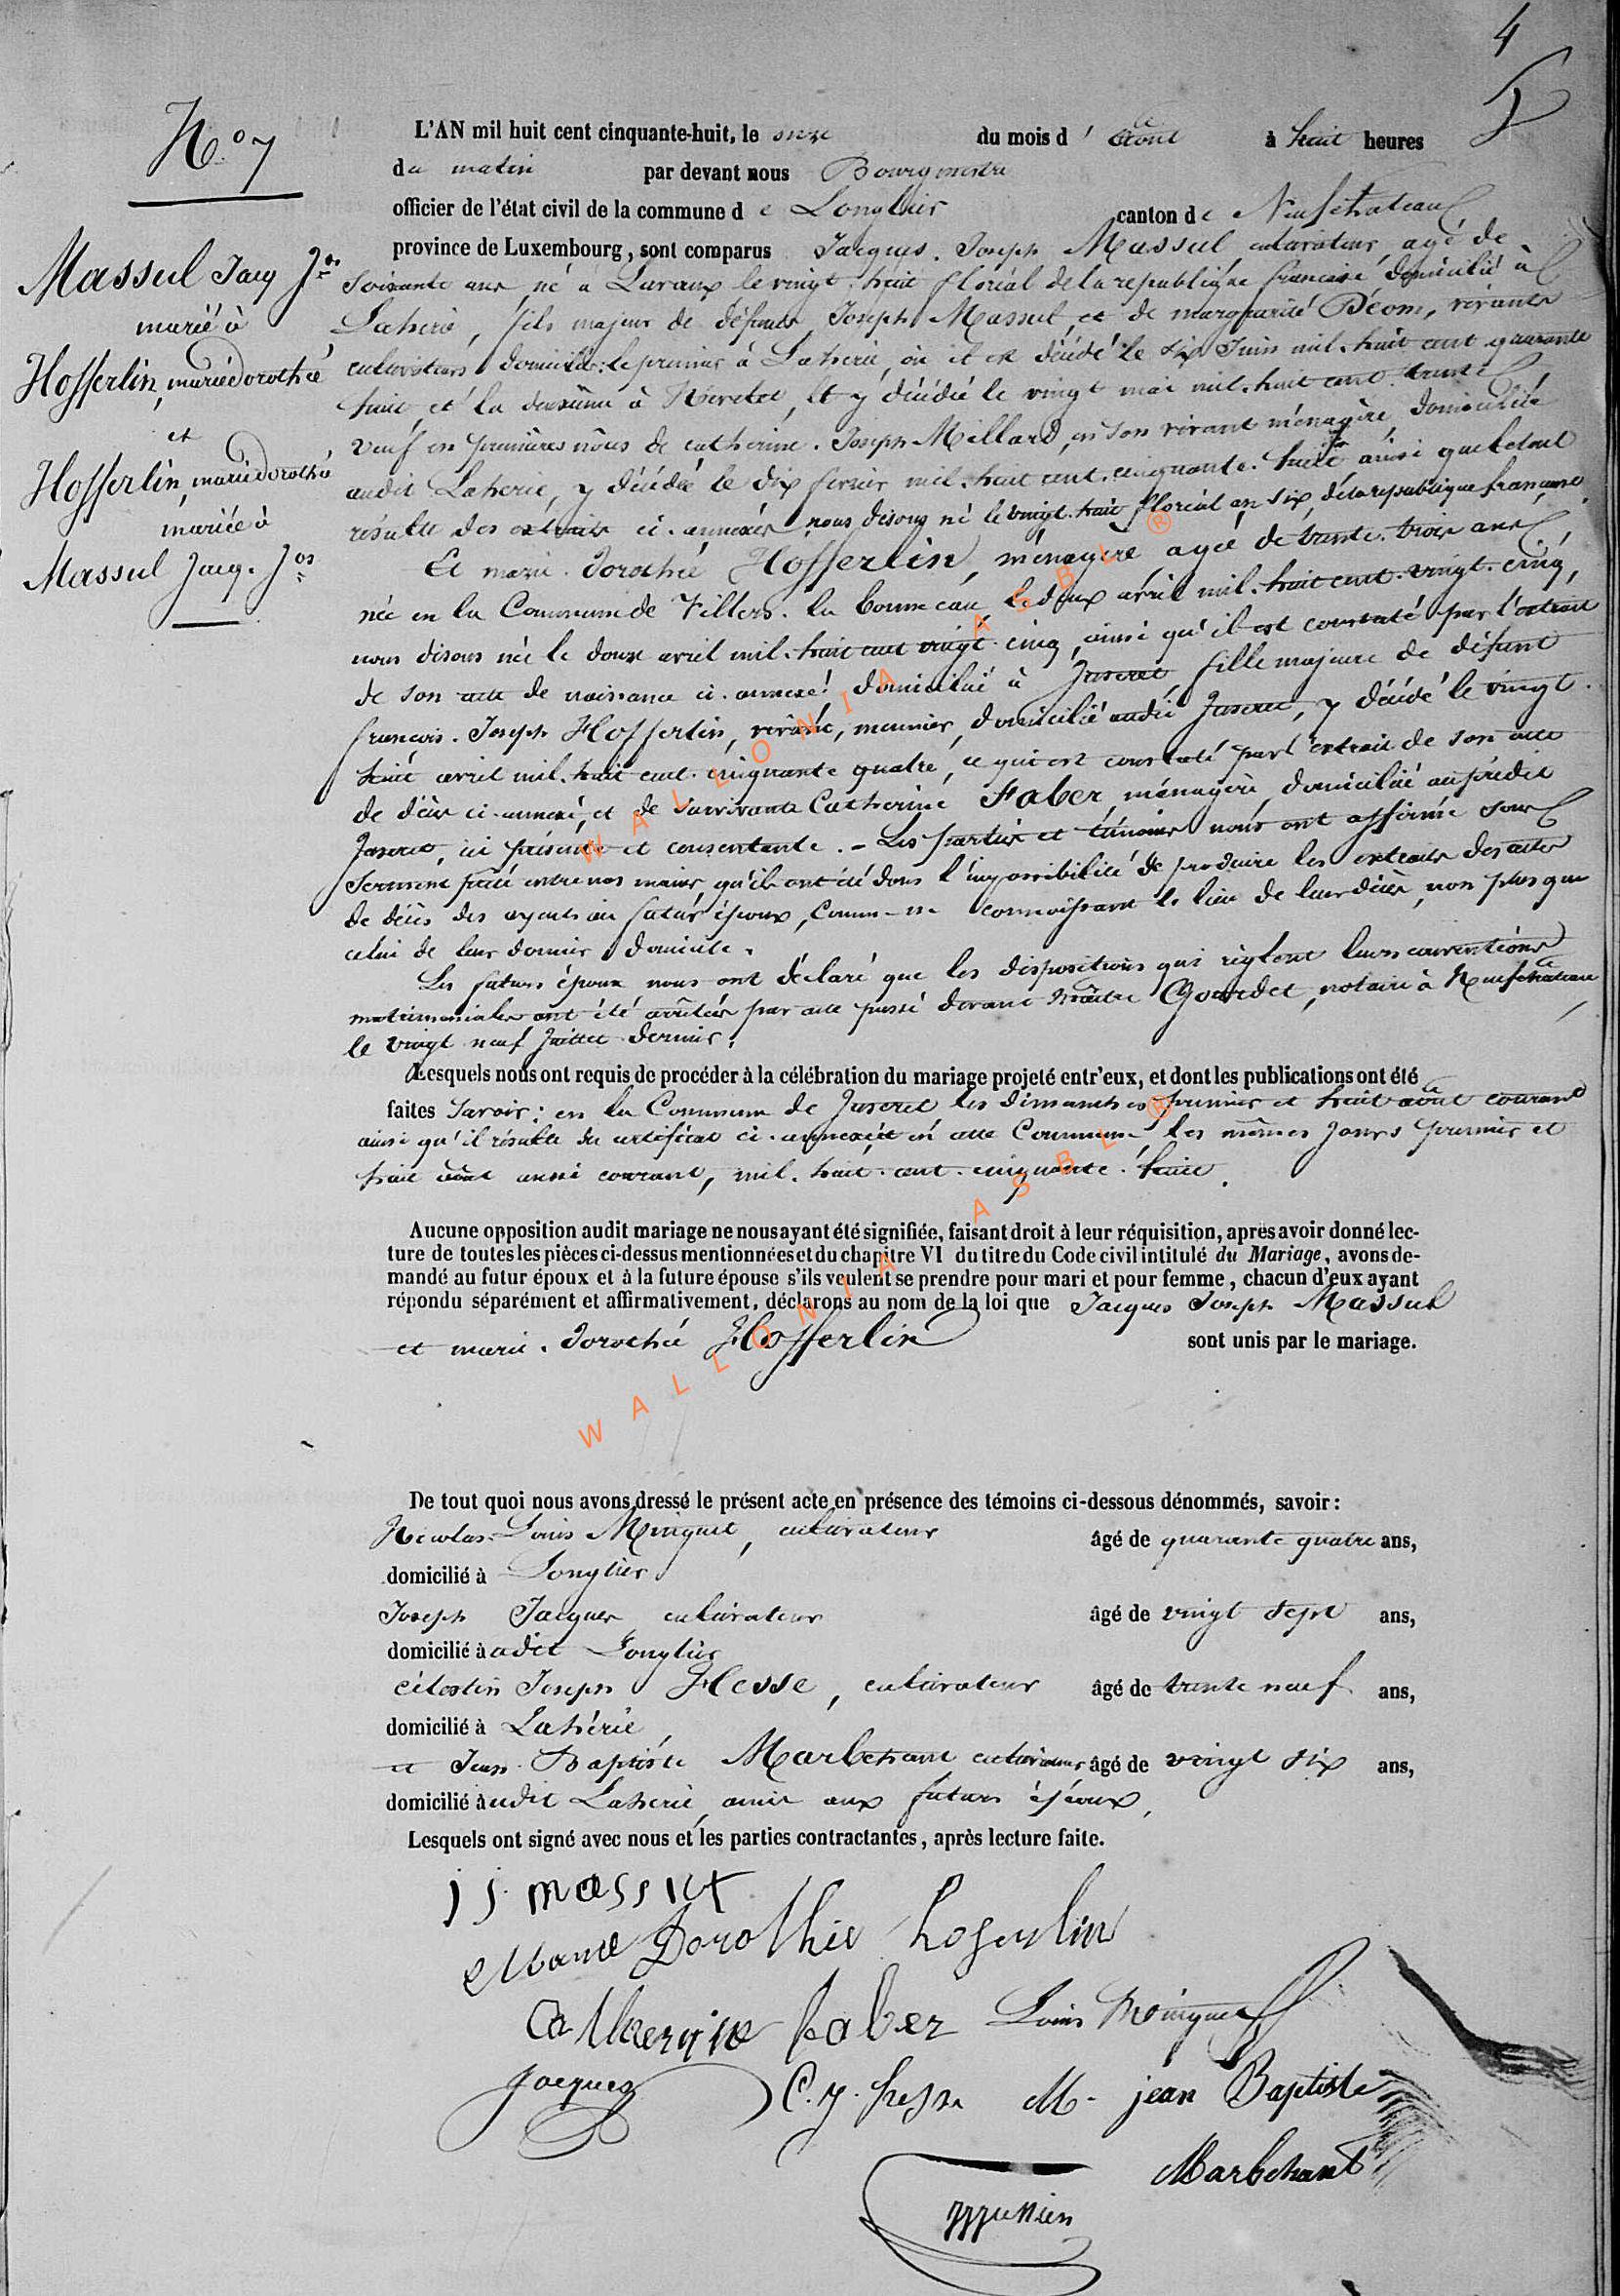 4
N.º 7
L'AN mil huit cent cinquante-huit, le onze du mois d' Août à huit heures
du matin par devant nous Bourgmestre
officier de l'état civil de la commune de Longlier canton de Neufchateau
province de Luxembourg, sont comparus Jacques Joseph Massul, cultivateur, agé de
soixante ans, né à Lavaux le vingt huit floréal de la republique francaise domicilié à
Laherie, fils majeur de défunts Joseph Massul, et de marguerite Béom, vivants
cultivateurs domiciliés: le premier à Laherie, où il est décédé le dix Juin mil huit cent quarante
huit, et la deuxième à, et y décédée le vingt mai mil huit cent trente,
veuf en premières nôces de catherine Joseph Millard, en son vivant ménagère, domiciliée
audit Laherie, y décédée le dix fevrier mil huit cent cinquante huit, ainsi que le tout
résulte des extraits ci-annexés, nous disons né le vingt huit floréal an six, de la republique francaise.
Et marie Dorothée Hofferlin, ménagère, agée de trente trois ans,
née en la Commune de Villers la bonne eau, le doux avril mil huit cent vingt cinq,
nous disons née le douze avril mil huit cent vingt cinq, ainsi qu'il est constaté par l'extrait
de son acte de naissance ci-annexé, domiciliée à Juseret, fille majeure de défunt
françois Joseph Hofferlin, vivant, meunier, domicilié audit Juseret, y décédé le vingt
huit avril mil huit cent cinquante quatre, ce qui est constaté par l'extrait de son acte
de décès ci-annexé, et de survivante Catherine Faber, ménagère, domiciliée au prédit
Juseret, ici présente et consentante. - Les parties et témoins nous ont affirmé sous
serment prêté entre nos mains, qu'ils ont été dans l'impossibilité de produire les extraits des actes
de décès des ayeuls du futur époux, comme ne connoissant le lieu de leur décès, non plus que
celui de leur dernier domicile.
Les futurs époux nous ont déclaré que les dispositions qui règlent leurs conventions
matrimoniales ont été arrêtées par acte passé devant maître Gourdet, notaire à Neufchateau
le vingt neuf Juillet dernier.
Lesquels nous ont requis de procéder à la célébration du mariage projeté entr'eux, et dont les publications ont été
faites Savoir: en la Commune de Juseret les dimanches premier et huit août courant
ainsi qu'il résulte du certificat ci-annexé, et en cette Commune les mêmes jours premier et
huit août aussi courant, mil huit cent cinquante huit.
Aucune opposition audit mariage ne nous ayant été signifiée, faisant droit à leur réquisition, après avoir donné lec-
ture de toutes les pièces ci-dessus mentionnées et du chapitre VI du titre du Code civil intitulé du Mariage, avons de-
mandé au futur époux et à la future épouse s'ils veulent se prendre pour mari et pour femme, chacun d'eux ayant
répondu séparément et affirmativement, déclarons au nom de la loi que Jacques Joseph Massul
et marie Dorothée Hofferlin sont unis par le mariage.
De tout quoi nous avons dressé le présent acte en présence des témoins ci-dessous dénommés, savoir:
Nicolas Louis Minguet, cultivateur âgé de quarante quatre ans,
domicilié à Longlier
Joseph Jacques cultivateur âgé de vingt sept ans,
domicilié à udit Longlier
célestin Joseph Hesse, cultivateur âgé de trente neuf ans,
domicilié à Lahérie
et Jean Baptiste Marbehant cultivateur âgé de vingt six ans,
domicilié à udit Laherie, amis aux futurs époux,
Lesquels ont signé avec nous et les parties contractantes, après lecture faite.
Massul Jacq Jos
mariè à
Hofferlin, marie dorothée
et
Hofferlin, marie dorothée
mariée à
Massul Jacq. Jos
jj. massut
Marie Dorothée hoferlin
Catherine faber Louis Minguet
Jacques C. J. hesse M. jean Baptiste
Marbehant
WALLONIA ASBL ®
WALLONIA ASBL ®